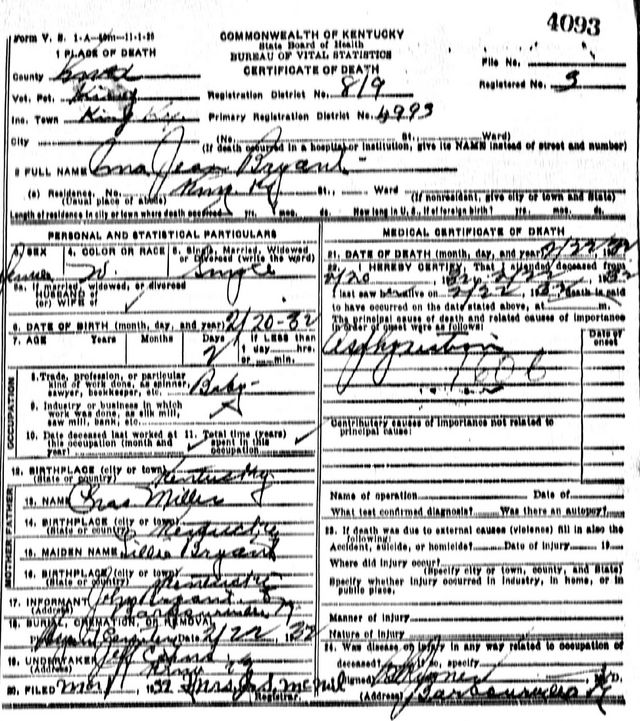 4093
Form V. S. 1-A-40m-11-1-29
COMMONWEALTH OF KENTUCKY
State Board of Health
BUREAU OF VITAL STATISTICS
CERTIFICATE OF DEATH
1 PLACE OF DEATH
County Knox
File No.
Registered No. 3
Vot. Pct.
Registration District No. 819
Inc. Town King Ky
Primary Registration District No. 4993
City
(No. St., Ward)
(If death occurred in a hospital or institution, give its NAME instead of street and number)
2 FULL NAME Jean Bryant
(a) Residence, No. King Ky St., Ward
(Usual place of abode) (If nonresident, give city or town and State)
Length of residence in city or town where death occurred yrs. mos. ds. How long in U. S., if of foreign birth? yrs. mos. ds.
PERSONAL AND STATISTICAL PARTICULARS
3. SEX
4. COLOR OR RACE W.
5. Single, Married, Widowed
or Divorced (write the word)
Single
5a. If married, widowed, or divorced
HUSBAND of
(or) WIFE of
6. DATE OF BIRTH (month, day, and year) 2/20-32
7. AGE Years Months Days If LESS than
2 1 day hrs.
or min.
OCCUPATION
8. Trade, profession, or particular
kind of work done, as spinner,
sawyer, bookkeeper, etc. Baby
9. Industry or business in which
work was done, as silk mill,
saw mill, bank, etc.
10. Date deceased last worked at
this occupation (month and
year)
11. Total time (years)
spent in this
occupation
12. BIRTHPLACE (city or town)
(State or country) Kentucky
FATHER
13. NAME Chas Miller
14. BIRTHPLACE (city or town)
(State or country) Kentucky
MOTHER
15. MAIDEN NAME Lillie Bryant
16. BIRTHPLACE (city or town)
(State or country) Kentucky
17. INFORMANT John Bryant
(Address)
18. BURIAL, CREMATION, OR REMOVAL
Place Bryant Cemetery Date 2/22, 1932
19. UNDERTAKER Jeff
(Address) King Ky
20. FILED Mar 1932 Mrs. McNeil
Registrar.
MEDICAL CERTIFICATE OF DEATH
21. DATE OF DEATH (month, day, and year) 2/22/32
22. I HEREBY CERTIFY, That I attended deceased from
2/20 1932, 2/22 1932
I last saw h alive on 2/22 1932, death is said
to have occurred on the date stated above, at m.
The principal cause of death and related causes of importance
in order of onset were as follows:
Date of
onset
1606
Contributory causes of importance not related to
principal cause:
Name of operation Date of
What test confirmed diagnosis? Was there an autopsy?
23. If death was due to external causes (violence) fill in also the
following:
Accident, suicide, or homicide? Date of injury 19
Where did injury occur?
(Specify city or town, county, and State)
Specify whether injury occurred in industry, in home, or in
public place.
Manner of injury
Nature of injury
24. Was disease or injury in any way related to occupation of
deceased? If so, specify
(Signed) M. D.
(Address) Barbourville Ky